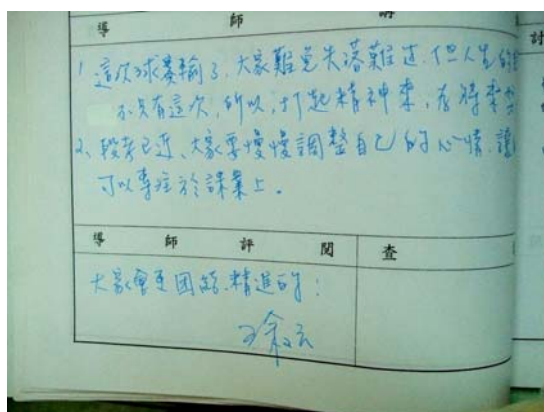 導 師 講
討
1 這次球賽輸了，大家難免失落難过，但人生的
不只有這次，所以，打起精神來，
2、段考已近、大家要慢慢調整自己的心情，讓
可以專注於課業上。
導 師 評 閱 查
大家會更團結.精進的！